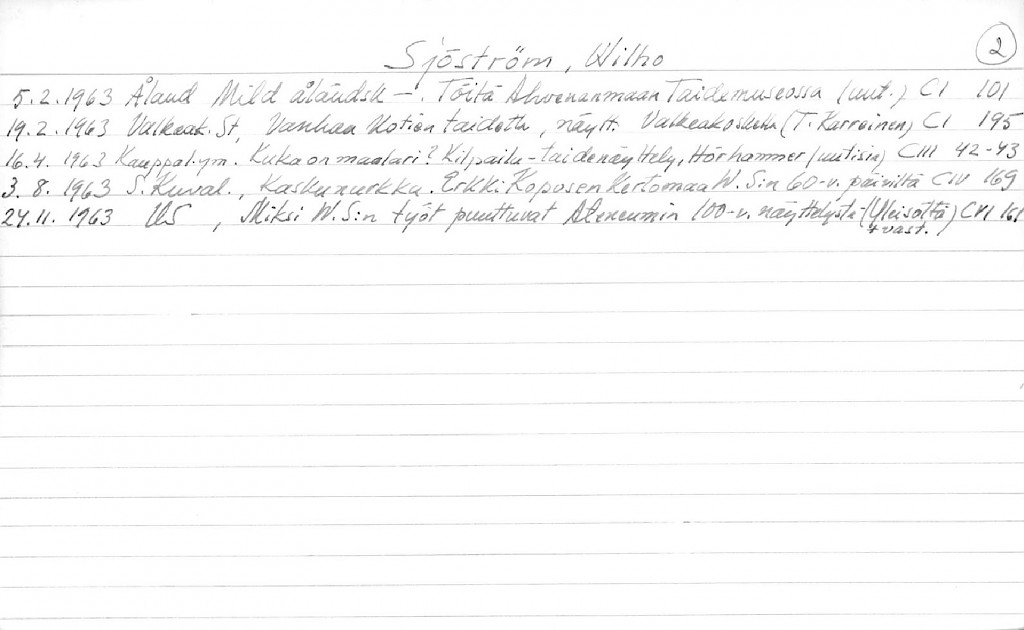 Sjöström, Wilho 2
5.2.1963 Åland Mild åländsk —. Töitä Ahvenanmaan Taidemuseossa (uut.) CI 101
19.2.1963 Valkeak. St, Vanhaa Kotien taidetta, näytt. Valkeakoskella (T. Karroinen) CI 195
16.4.1963 Kauppal. ym. Kuka on maalari? Kilpailu-taidenäyttely, Hörhammer (uutisia) CIII 42-43
3.8.1963 S. Kuval., Kaskunurkka. Erkki Koposen kertomaa W.S:n 60-v. päiviltä CIV 169
24.11.1963 US, Miksi W.S:n työt puuttuvat Ateneumin 100-v. näyttelystä (Yleisöltä) CVI 161
+ vast.